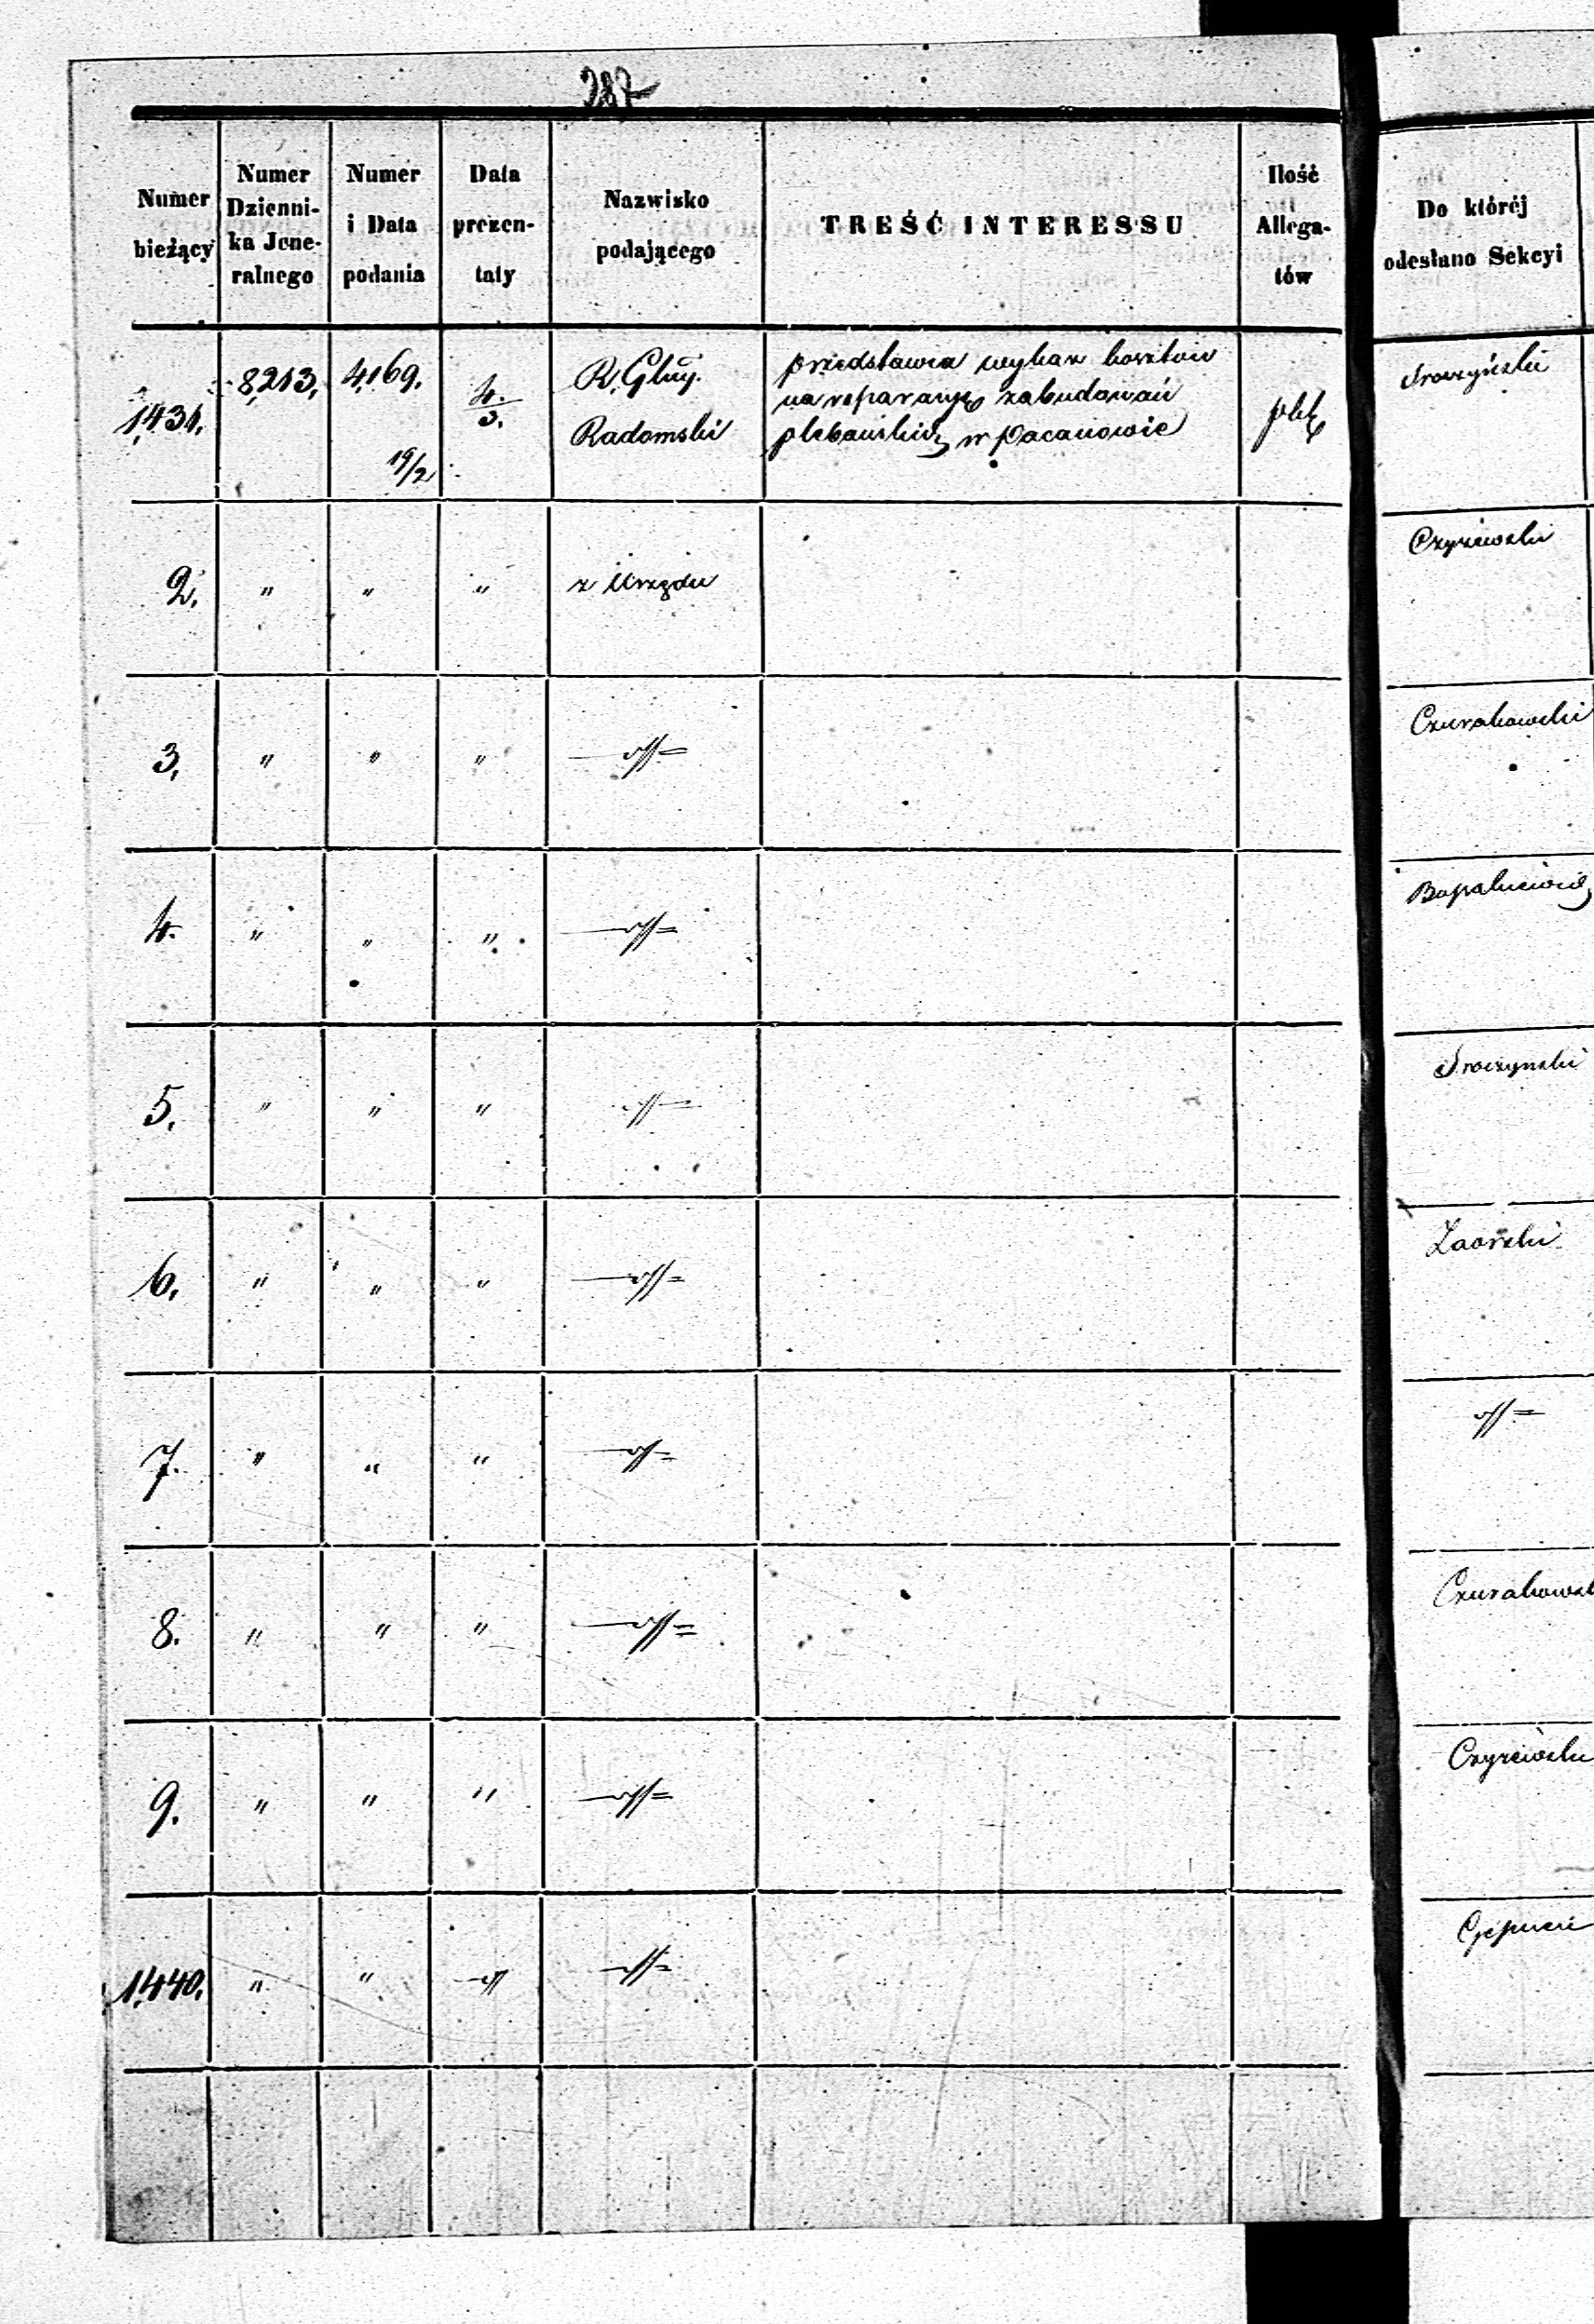 287
Numer bieżący
Numer Dzienni-
ka Jene-
ralnego
Numer
i Data
podania
Data
prezen-
taty
Nazwisko
podającego
TREŚĆ INTERESSU
Ilość
Allega-
tów
Do któréj
odesłano Sekcyi
1,431.
8,213,
4,169.
19/2
4./3.
R. Gbuy.
Radomski
przedstawia wykaz kosztów
na reparacyę zabudowań
plebańskich w Pacanowie
plik
Sroczyński
2, " " " z Urzędu
Czyżewski
3, " " "
Czurakowski
4. " " "
5, " " "
Sroczynski
6, " " "
Zaorski
7. " " "
8. " " "
Czurakowsk
9. " " "
Czyżewski
1,440. " "